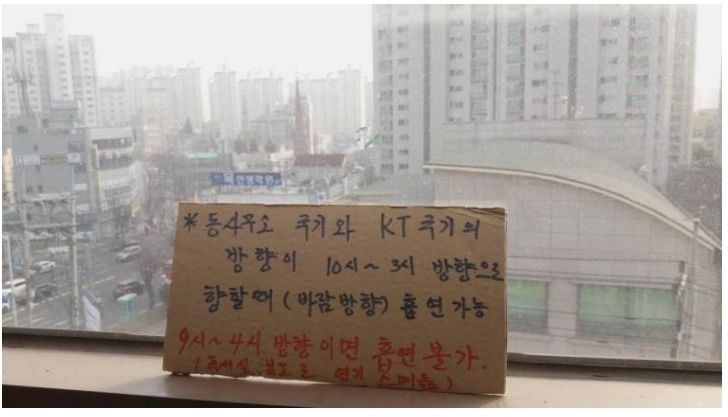 * 동사무소 국기와 KT 국기의
방향이 10시~3시 방향으로
향할때(바람방향) 흡연가능
9시~4시. 방향이면 흡연 불가.
복도로 연기 스며듦)